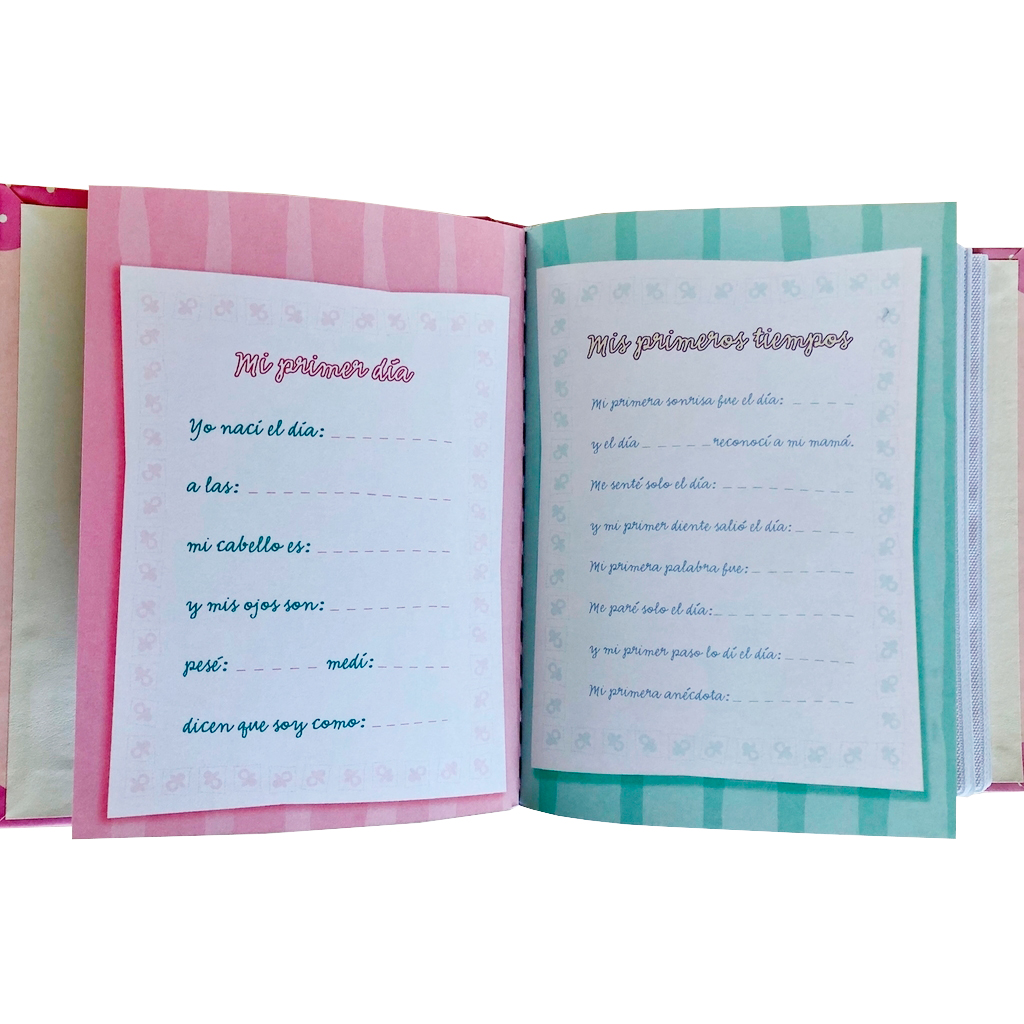 Mi primer día
Yo nací el día: _ _ _ _ _ _ _ _
a las: _ _ _ _ _ _ _ _ _ _ _ _ _
mi cabello es: _ _ _ _ _ _ _ _ _
y mis ojos son: _ _ _ _ _ _ _ _
pesé: _ _ _ _ _ medí: _ _ _ _ _
dicen que soy como: _ _ _ _ _
Mis primeros tiempos
Mi primera sonrisa fue el día: _ _ _ _
y el día _ _ _ _ _ reconocí a mi mamá.
Me senté solo el día: _ _ _ _ _ _ _ _ _
y mi primer diente salió el día: _ _ _ _
Mi primera palabra fue: _ _ _ _ _ _ _
Me paré solo el día: _ _ _ _ _ _ _ _ _
y mi primer paso lo dí el día: _ _ _ _ _
Mi primera anécdota: _ _ _ _ _ _ _ _